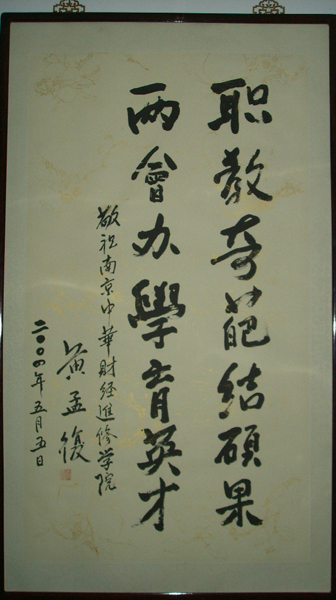 职教奇葩结硕果
两會办學育英才
敬祝南京中華财经進修学院
黄孟復
二〇〇四年五月五日